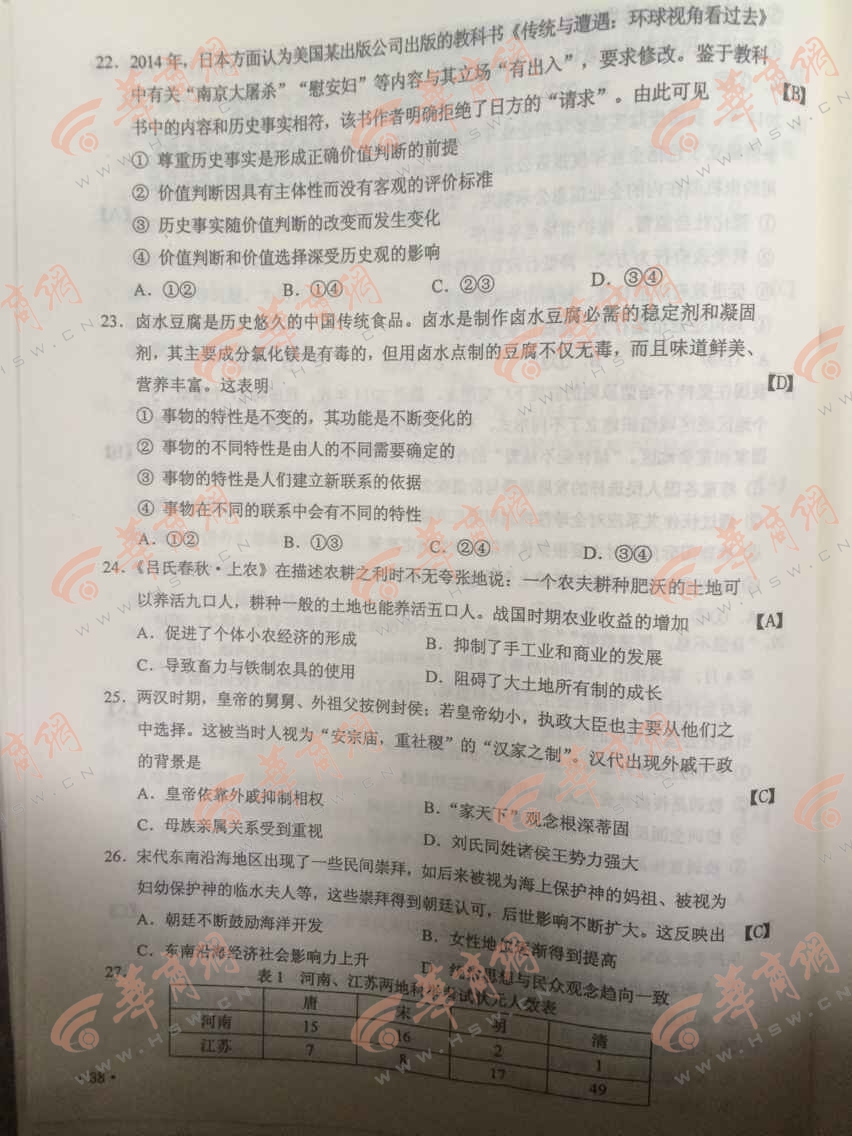 22. 2014年，日本方面认为美国某出版公司出版的教科书《传统与遭遇：环球视角看过去》
中有关“南京大屠杀”“慰安妇”等内容与其立场“有出入”，要求修改。鉴于教科
书中的内容和历史事实相符，该书作者明确拒绝了日方的“请求”。由此可见 【B】
① 尊重历史事实是形成正确价值判断的前提
② 价值判断因具有主体性而没有客观的评价标准
③ 历史事实随价值判断的改变而发生变化
④ 价值判断和价值选择深受历史观的影响
A. ①② B. ①④ C. ②③ D. ③④
23. 卤水豆腐是历史悠久的中国传统食品。卤水是制作卤水豆腐必需的稳定剂和凝固
剂，其主要成分氯化镁是有毒的，但用卤水点制的豆腐不仅无毒，而且味道鲜美、
营养丰富。这表明 【D】
① 事物的特性是不变的，其功能是不断变化的
② 事物的不同特性是由人的不同需要确定的
③ 事物的特性是人们建立新联系的依据
④ 事物在不同的联系中会有不同的特性
A. ①② B. ①③ C. ②④ D. ③④
24.《吕氏春秋·上农》在描述农耕之利时不无夸张地说：一个农夫耕种肥沃的土地可
以养活九口人，耕种一般的土地也能养活五口人。战国时期农业收益的增加 【A】
A. 促进了个体小农经济的形成 B. 抑制了手工业和商业的发展
C. 导致畜力与铁制农具的使用 D. 阻碍了大土地所有制的成长
25. 两汉时期，皇帝的舅舅、外祖父按例封侯；若皇帝幼小，执政大臣也主要从他们之
中选择。这被当时人视为“安宗庙，重社稷”的“汉家之制”。汉代出现外戚干政
的背景是 【C】
A. 皇帝依靠外戚抑制相权 B. “家天下”观念根深蒂固
C. 母族亲属关系受到重视 D. 刘氏同姓诸侯王势力强大
26. 宋代东南沿海地区出现了一些民间崇拜，如后来被视为海上保护神的妈祖、被视为
妇幼保护神的临水夫人等，这些崇拜得到朝廷认可，后世影响不断扩大。这反映出 【C】
A. 朝廷不断鼓励海洋开发 B. 女性地位逐渐得到提高
C. 东南沿海经济社会影响力上升 D. 统治思想与民众观念趋向一致
27. 表1 河南、江苏两地科举考试状元人数表
唐 宋 明 清
河南 15 16 2 1
江苏 7 8 17 49
·38·
华商网
WWW.HSW.CN